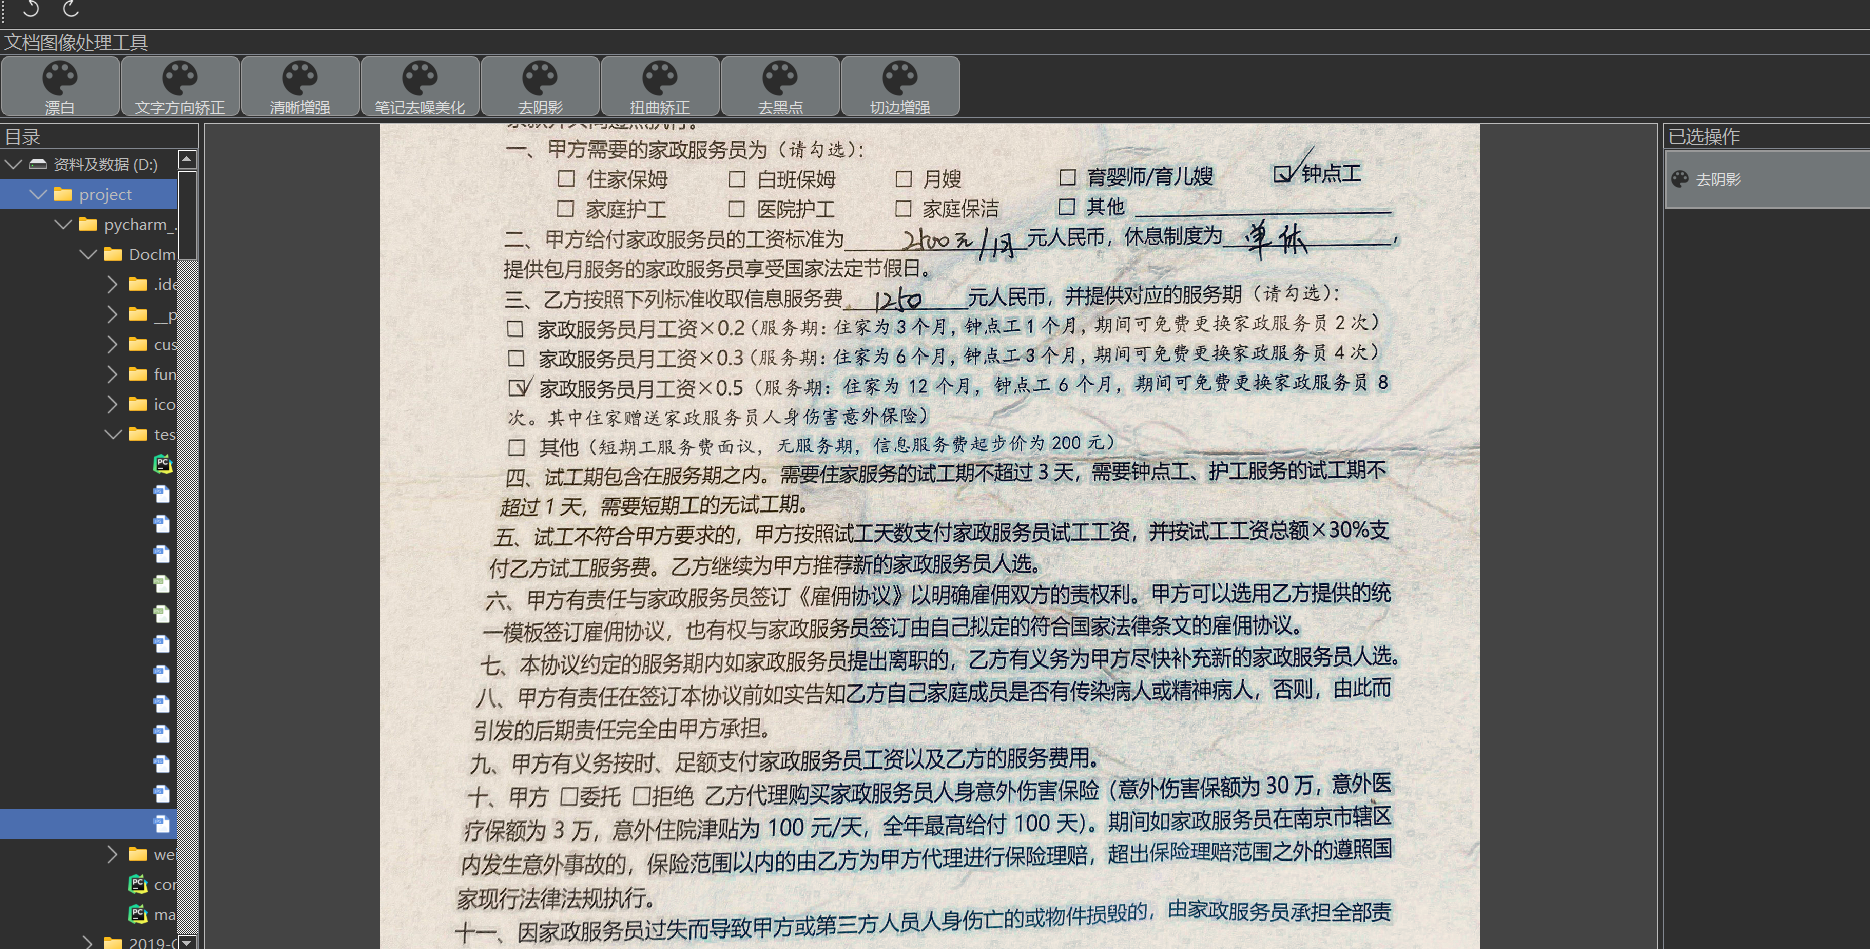 文档图像处理工具
漂白
文字方向矫正
清晰增强
笔记去噪美化
去阴影
扭曲矫正
去黑点
切边增强
目录
资料及数据 (D:)
project
pycharm_
DocIm
.ide
__p
cus
fun
ico
tes
we
cor
ma
2019-
已选操作
去阴影
一、甲方需要的家政服务员为（请勾选）：
□ 住家保姆 □ 白班保姆 □ 月嫂 □ 育婴师/育儿嫂 ☑ 钟点工
□ 家庭护工 □ 医院护工 □ 家庭保洁 □ 其他
二、甲方给付家政服务员的工资标准为 2500元/月 元人民币，休息制度为 单休 ，
提供包月服务的家政服务员享受国家法定节假日。
三、乙方按照下列标准收取信息服务费 1250 元人民币，并提供对应的服务期（请勾选）：
□ 家政服务员月工资×0.2（服务期：住家为 3 个月，钟点工 1 个月，期间可免费更换家政服务员 2 次）
□ 家政服务员月工资×0.3（服务期：住家为 6 个月，钟点工 3 个月，期间可免费更换家政服务员 4 次）
☑ 家政服务员月工资×0.5（服务期：住家为 12 个月，钟点工 6 个月，期间可免费更换家政服务员 8
次。其中住家赠送家政服务员人身伤害意外保险）
□ 其他（短期工服务费面议，无服务期，信息服务费起步价为 200 元）
四、试工期包含在服务期之内。需要住家服务的试工期不超过 3 天，需要钟点工、护工服务的试工期不
超过 1 天，需要短期工的无试工期。
五、试工不符合甲方要求的，甲方按照试工天数支付家政服务员试工工资，并按试工工资总额×30%支
付乙方试工服务费。乙方继续为甲方推荐新的家政服务员人选。
六、甲方有责任与家政服务员签订《雇佣协议》以明确雇佣双方的责权利。甲方可以选用乙方提供的统
一模板签订雇佣协议，也有权与家政服务员签订由自己拟定的符合国家法律条文的雇佣协议。
七、本协议约定的服务期内如家政服务员提出离职的，乙方有义务为甲方尽快补充新的家政服务员人选。
八、甲方有责任在签订本协议前如实告知乙方自己家庭成员是否有传染病人或精神病人，否则，由此而
引发的后期责任完全由甲方承担。
九、甲方有义务按时、足额支付家政服务员工资以及乙方的服务费用。
十、甲方 □委托 □拒绝 乙方代理购买家政服务员人身意外伤害保险（意外伤害保额为 30 万，意外医
疗保额为 3 万，意外住院津贴为 100 元/天，全年最高给付 100 天）。期间如家政服务员在南京市辖区
内发生意外事故的，保险范围以内的由乙方为甲方代理进行保险理赔，超出保险理赔范围之外的遵照国
家现行法律法规执行。
十一、因家政服务员过失而导致甲方或第三方人员人身伤亡的或物件损毁的，由家政服务员承担全部责